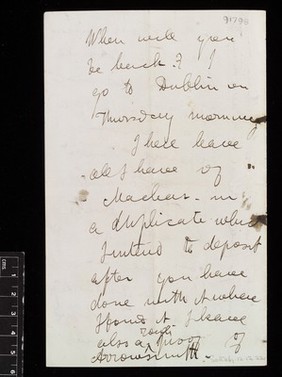 When will you
be back? I
go to Dublin on
Thursday morning
I here leave
all I have of
in
a duplicate which
I intend to deposit
after you have
done with it where
I found it I leave
also a rough proof of
Arrowsmith.